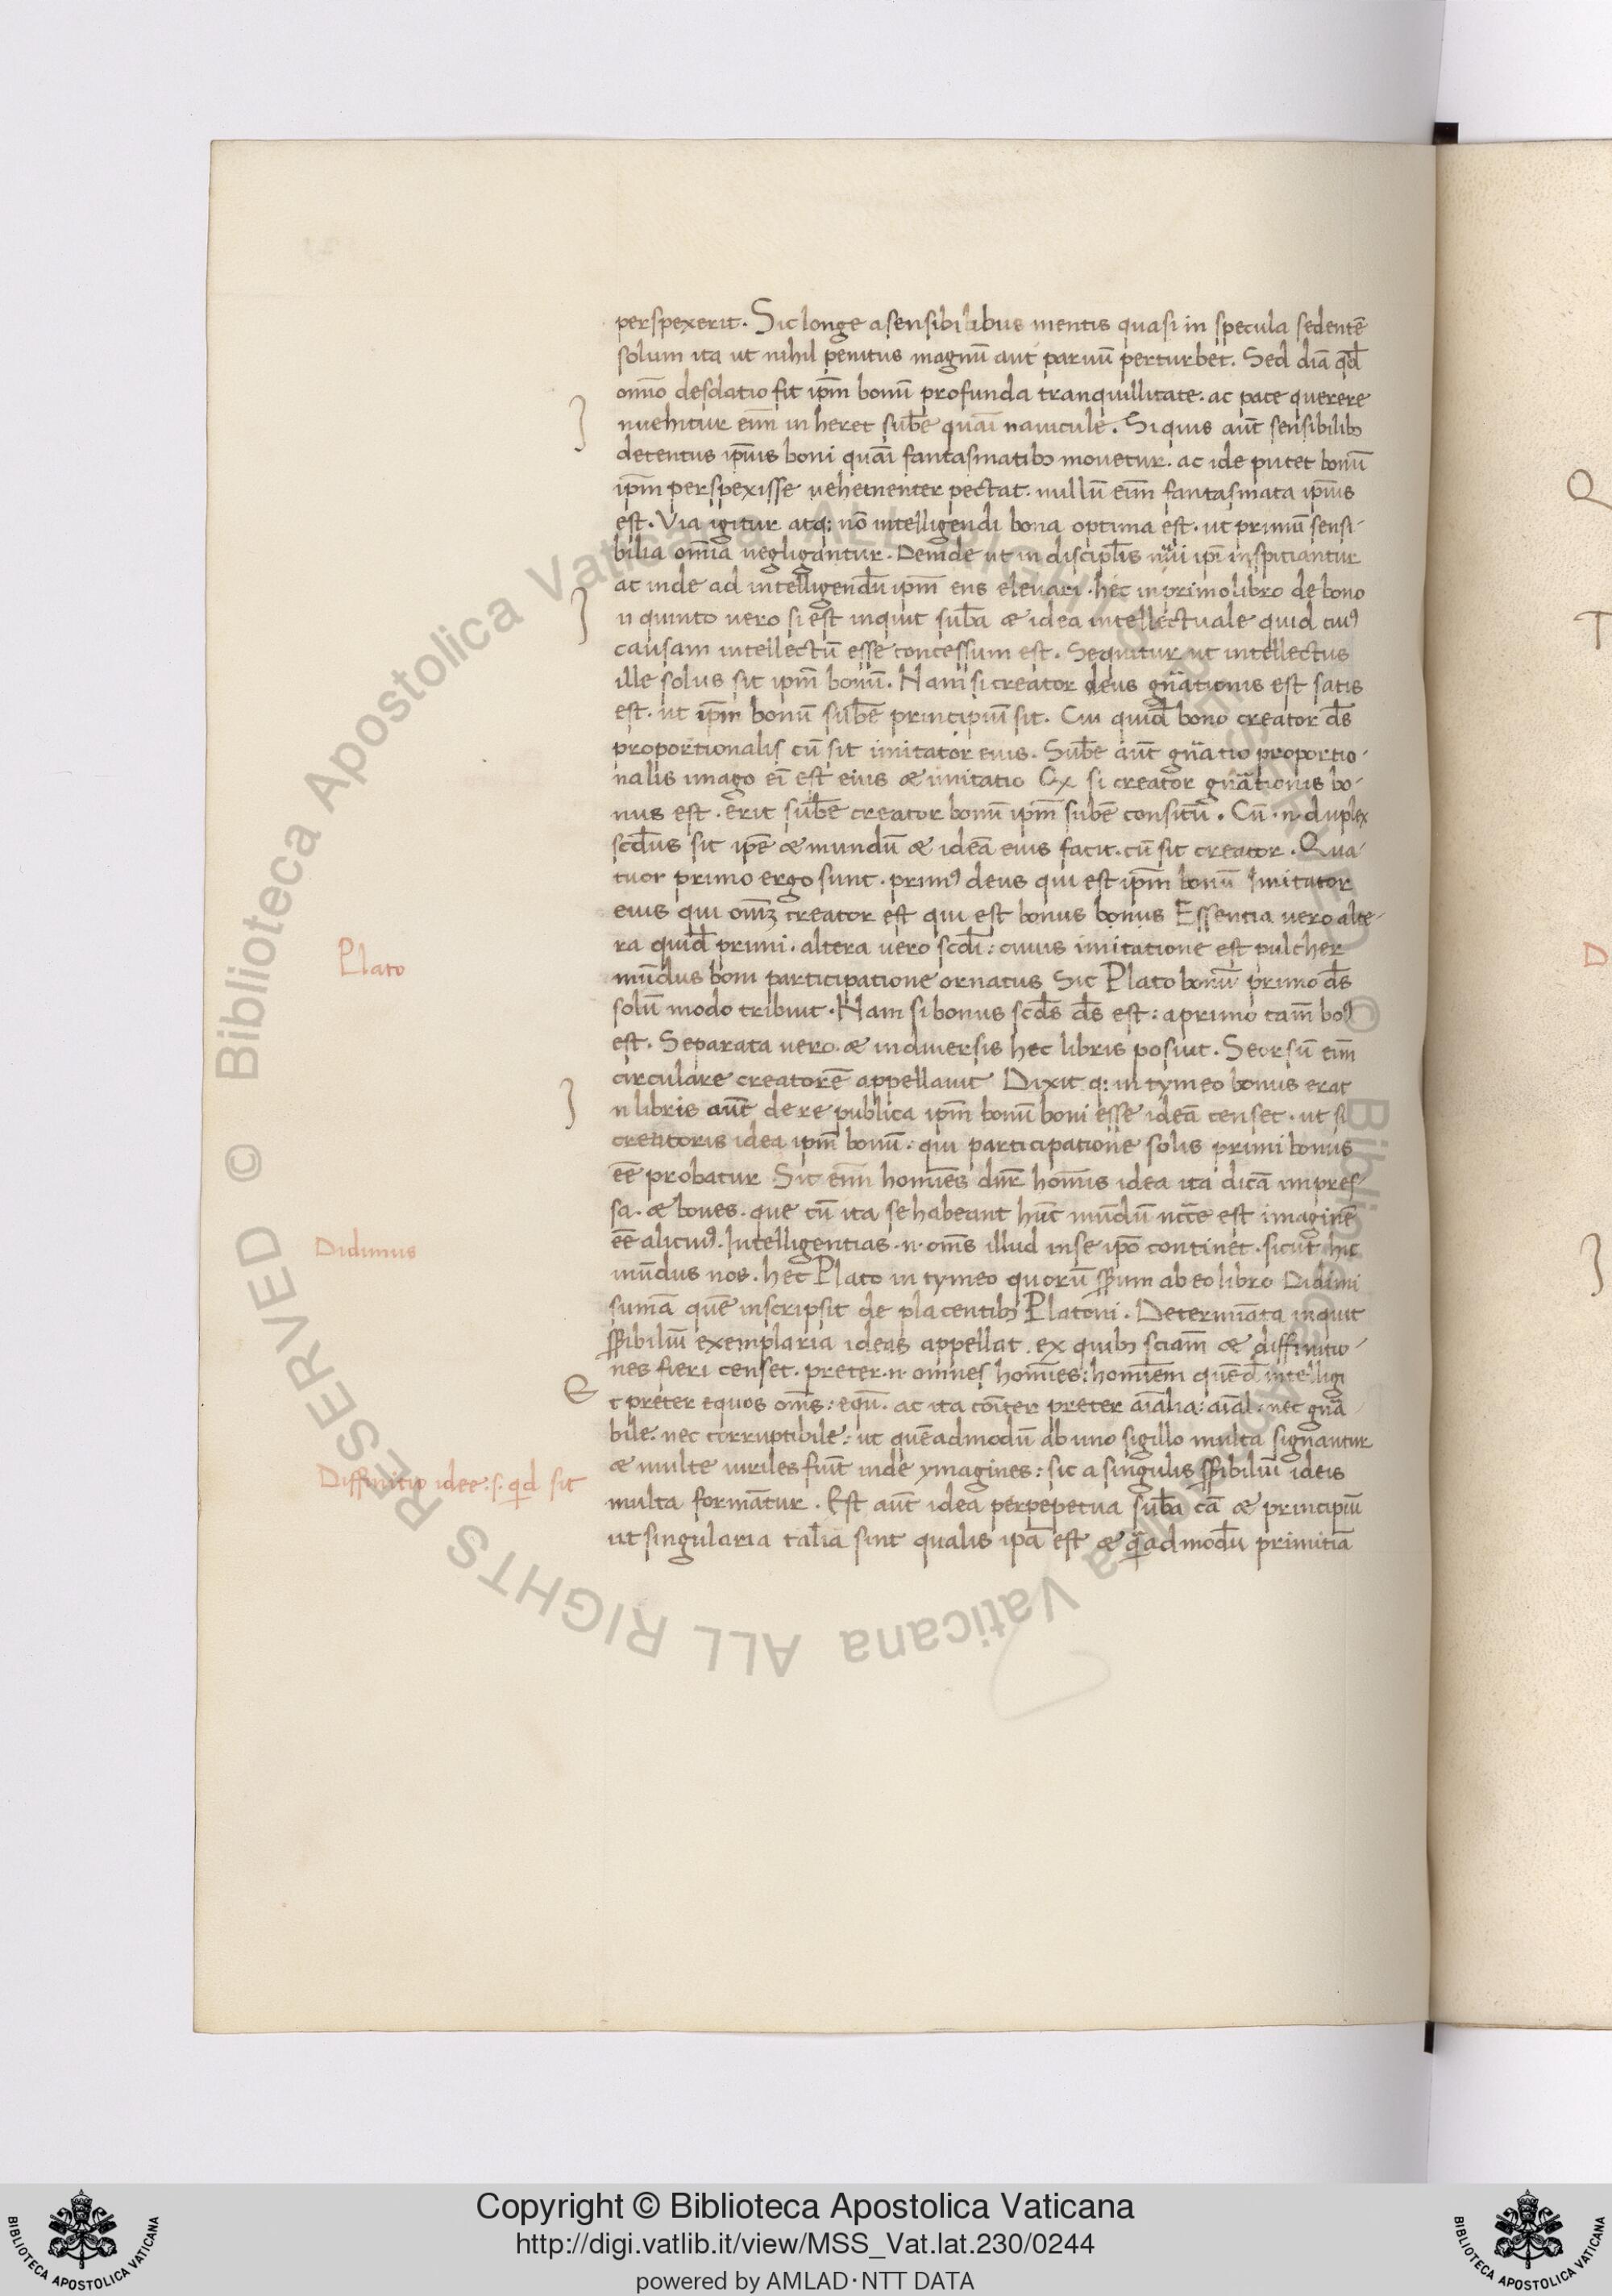 perspexerit. Sic longe a sensibilibus mentis quasi in specula sedentē
solum ita ut nihil penitus magnū aut paruū perturbet. Sed diā qd̄
om̄o desdatio fit ip̄m bonū profunda tranquillitate. ac pace querere
I nuehitur eīm in heret sub̄e quāi nauicule. Si quis aūt sensibilib3
detentus ip̄ius boni quāi fantasmatib3 mouetur. ac ide putet bonū
ip̄m perspexisse uehementer pectat. nullū eīm fantasmata ip̄ius
est. Via igitur atq; nō intelligendi bona optima est. ut primū sensi-
bilia om̄ia negligantur. Deinde ut in discipl̄is inspiciantur
ac inde ad intelligendū ip̄m ens eleuari. hec in primo libro de bono
I n quinto uero si est inquit sub̄a æ idea intellectuale quid cui9
causam intellectū esse concessum est. Sequitur ut intellectus
ille solus sit ip̄m bonū. Nam si creator deus gn̄ationis est satis
est. ut ip̄m bonū sub̄e principiū sit. Cui quid̄ bono creator d̄s
proportionalis cū sit imitator eius. Sub̄e aūt gn̄atio proportio-
nalis imago eī est eius æ imitatio Ex si creator gn̄ationis bo-
nus est. erit sub̄e creator bonū ip̄m sub̄e consitū. Cū .n. duplex
scd̄us sit ip̄e æ mundū æ ideā eius facit. cū sit creator. Qua-
tuor primo ergo sunt. prim9 deus qui est ip̄m bonū Imitator
eius qui om̄3 creator est qui est bonus bonus Essentia uero alte-
ra quid̄ primi. altera uero scd̄i: cuius imitatione est pulcher
Plato
mūdus boni participatione ornatus Sic Plato bonū primo d̄s
solū modo tribuit. Nam si bonus scd̄s d̄s est: a primo tam̄ bo9
est. Separata uero. æ in diuersis hec libris posuit. Seorsū eīm
circulare creatorē appellauit Dixit q: in tymeo bonus erat
I n libris aūt de re publica ip̄m bonū boni esse ideā censet. ut si
creatoris idea ip̄m bonū: qui participatione solis primi bonus
eē probatur Sic eīm homīes dn̄r homīs idea ita dicā impres-
sa. æ boues. que cū ita se habeant hūc mūdū nc̄ce est imaginē
Didimus
eē alicui9. Intelligentias .n. om̄s illud in se ip̄o continet. sicut hic
mūdus nos. hec Plato in tymeo quorū ab eo libro Didimi
sumā quē inscripsit de placentib3 Platoni. Determīata inquit
exemplaria ideas appellat. ex quib3 sciam̄ æ diffinitio-
nes fieri censet. preter .n. omnes homīes: homīem quēd̄ intelligi
E t preter equos om̄s: eqū. ac ita cōiter preter aīalia: aīal: nec gn̄a-
bile. nec corruptibile: ut quēadmodū ab uno sigillo multa signantur
Diffinitio idee: s. qd sit
æ multe uiriles fiūt inde ymagines: sic a singulis ideis
multa formātur. Est aūt idea perpepetua sub̄a cā æ principiū
ut singularia talia sint qualis ip̄a est æ q̄admodū primitiā
© Biblioteca Apostolica Vaticana ALL RIGHTS RESERVED
Copyright © Biblioteca Apostolica Vaticana
http://digi.vatlib.it/view/MSS_Vat.lat.230/0244
powered by AMLAD·NTT DATA
BIBLIOTECA APOSTOLICA VATICANA
BIBLIOTECA APOSTOLICA VATICANA